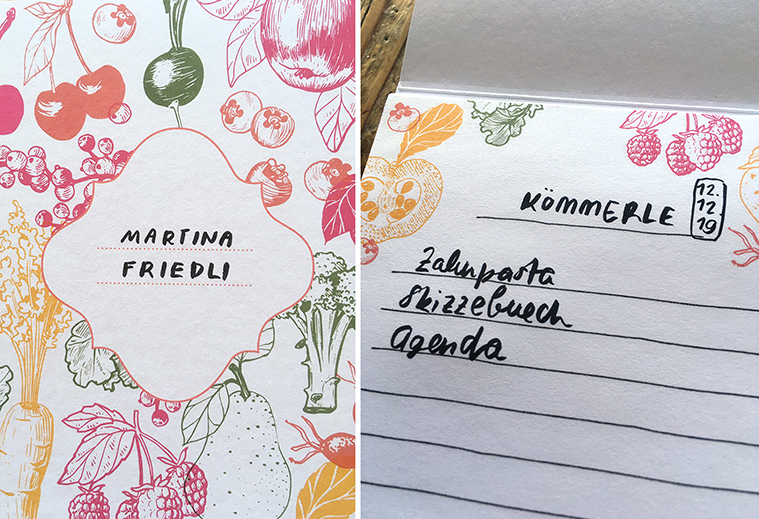 MARTINA
FRIEDLI
KÖMMERLE
12
12
19
Zahnpasta
Skizzebuech
Agenda